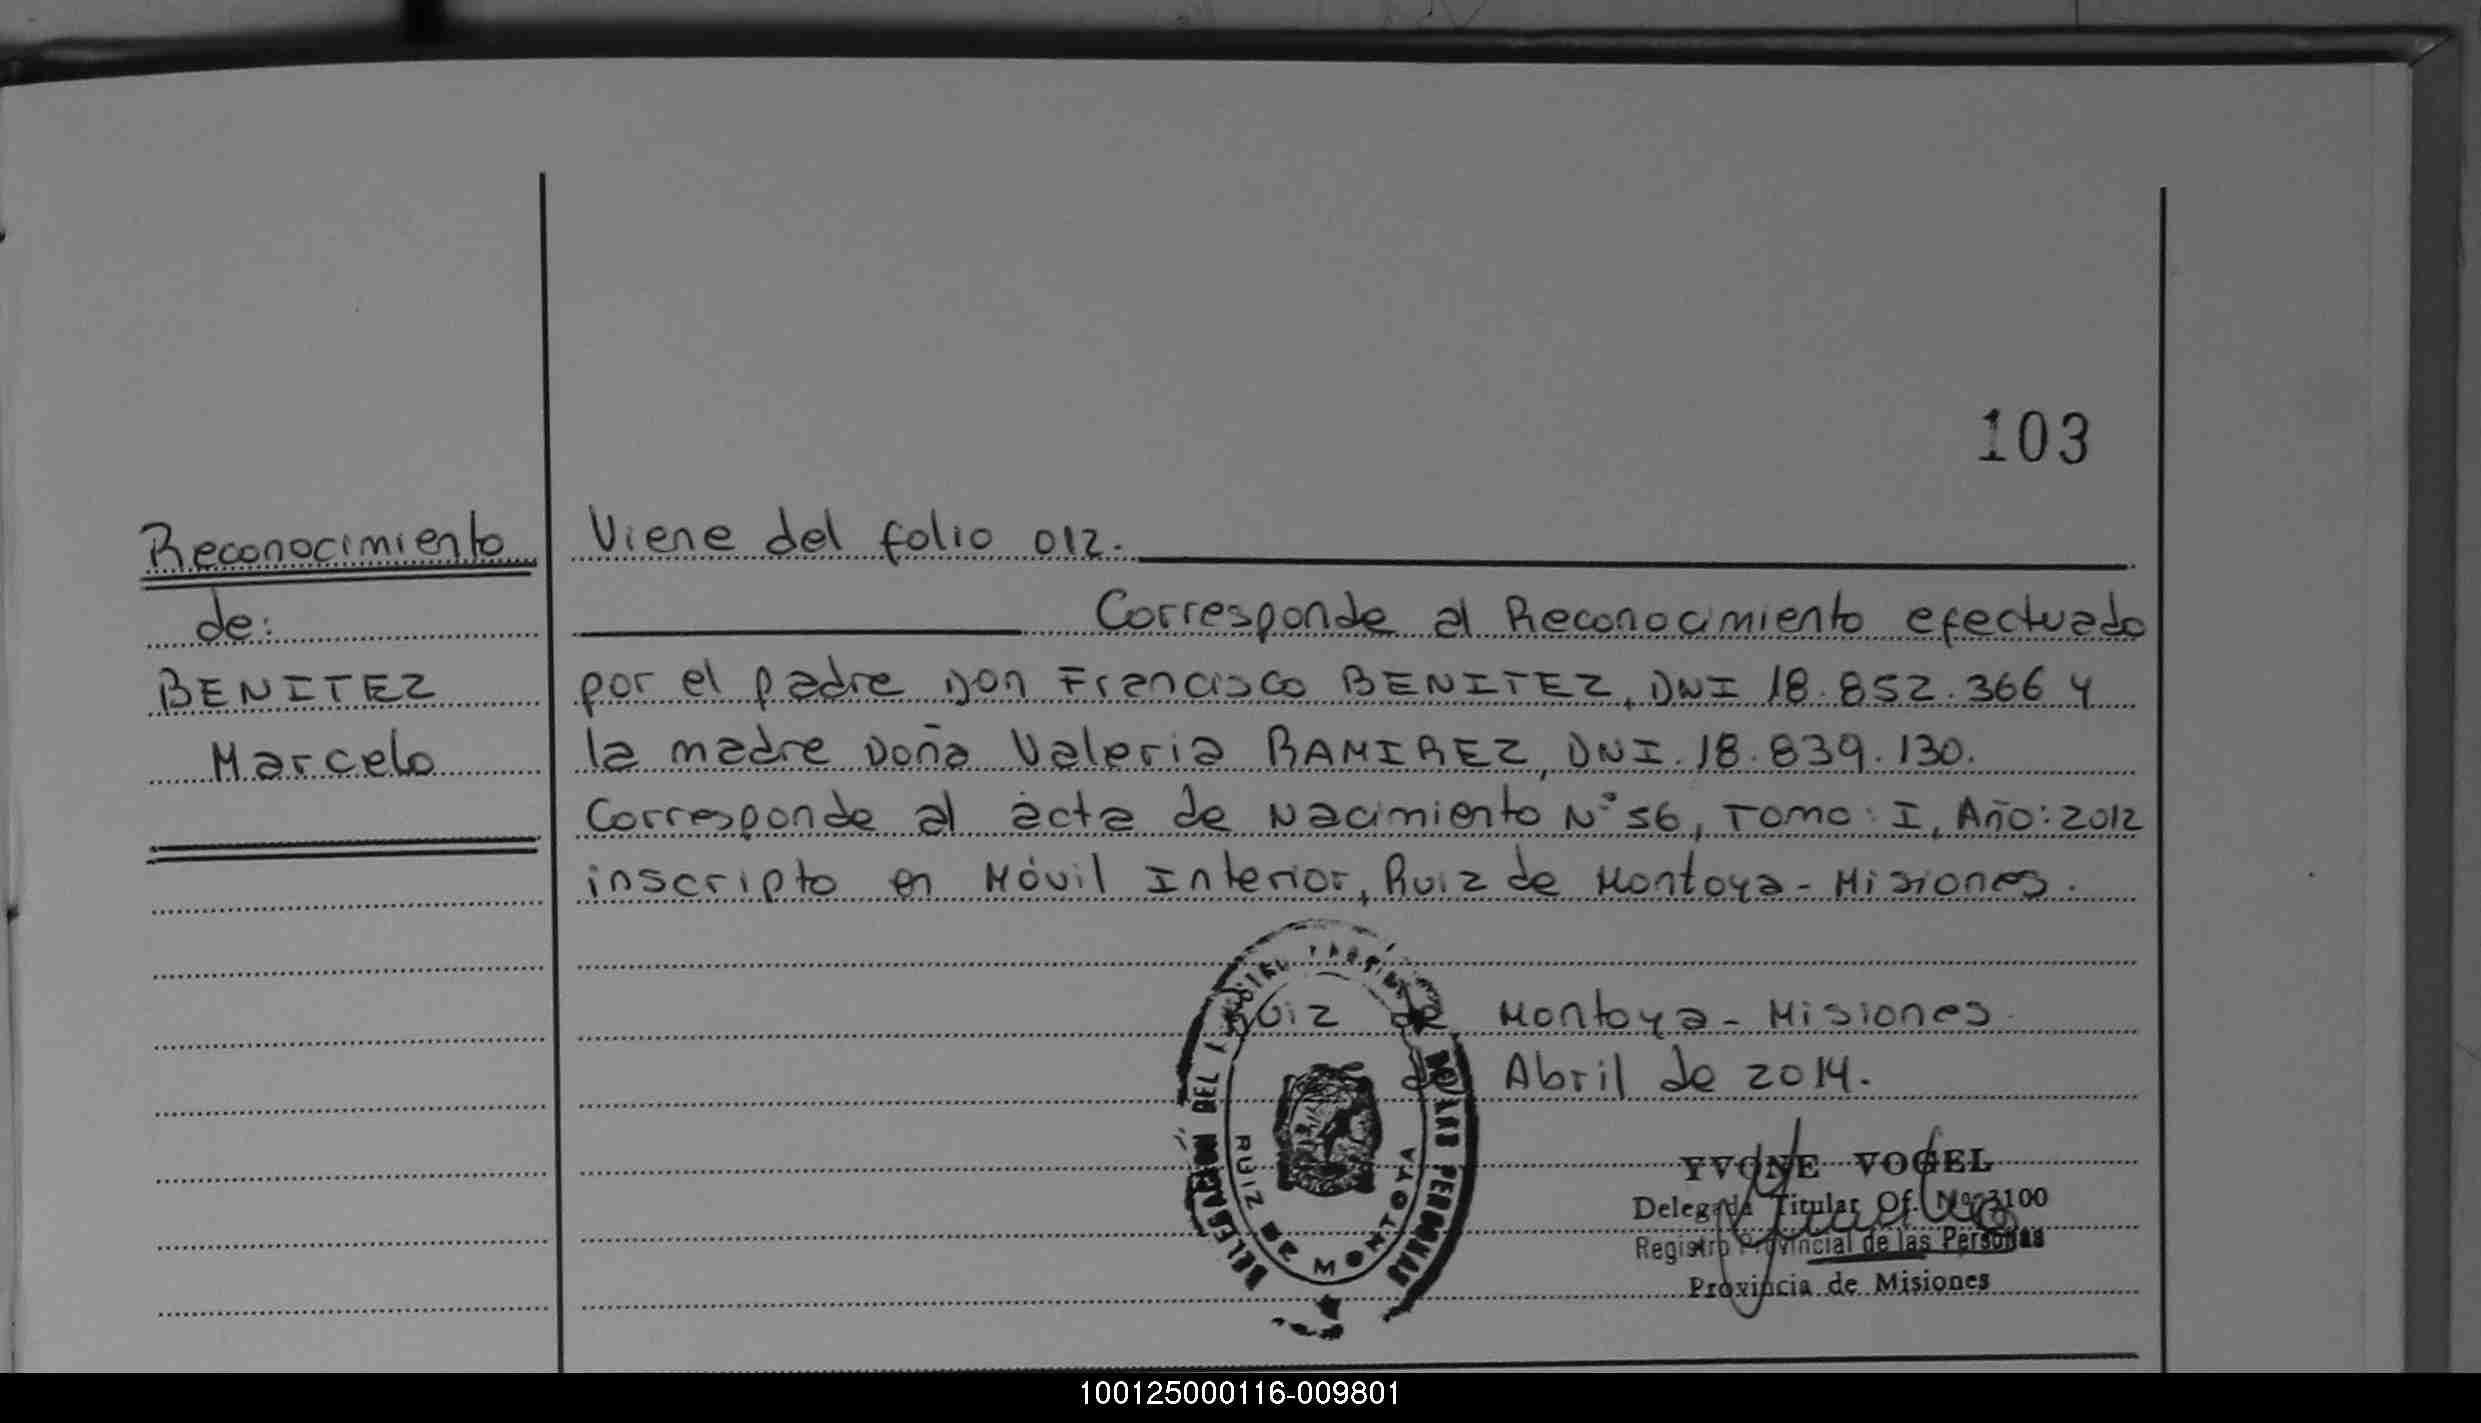 103
Reconocimiento
de:
BENITEZ
Marcelo
Viene del folio 012.
Corresponde al Reconocimiento efectuado
por el padre Don Francisco BENITEZ, DNI 18.852.366 y
la madre Doña Valeria RAMIREZ, DNI.18.839.130.
Corresponde al acta de Nacimiento N° 56, Tomo: I, Año: 2012
inscripto en Móvil Interior, Ruiz de Montoya - Misiones.
Ruiz de Montoya - Misiones
de Abril de 2014.
DELEGACION DEL PERSONAS
RUIZ DE MONTOYA
YVONE VOGEL
Delegada Titular Of. Nº 3100
Registro Provincial de las Personas
Provincia de Misiones
100125000116-009801